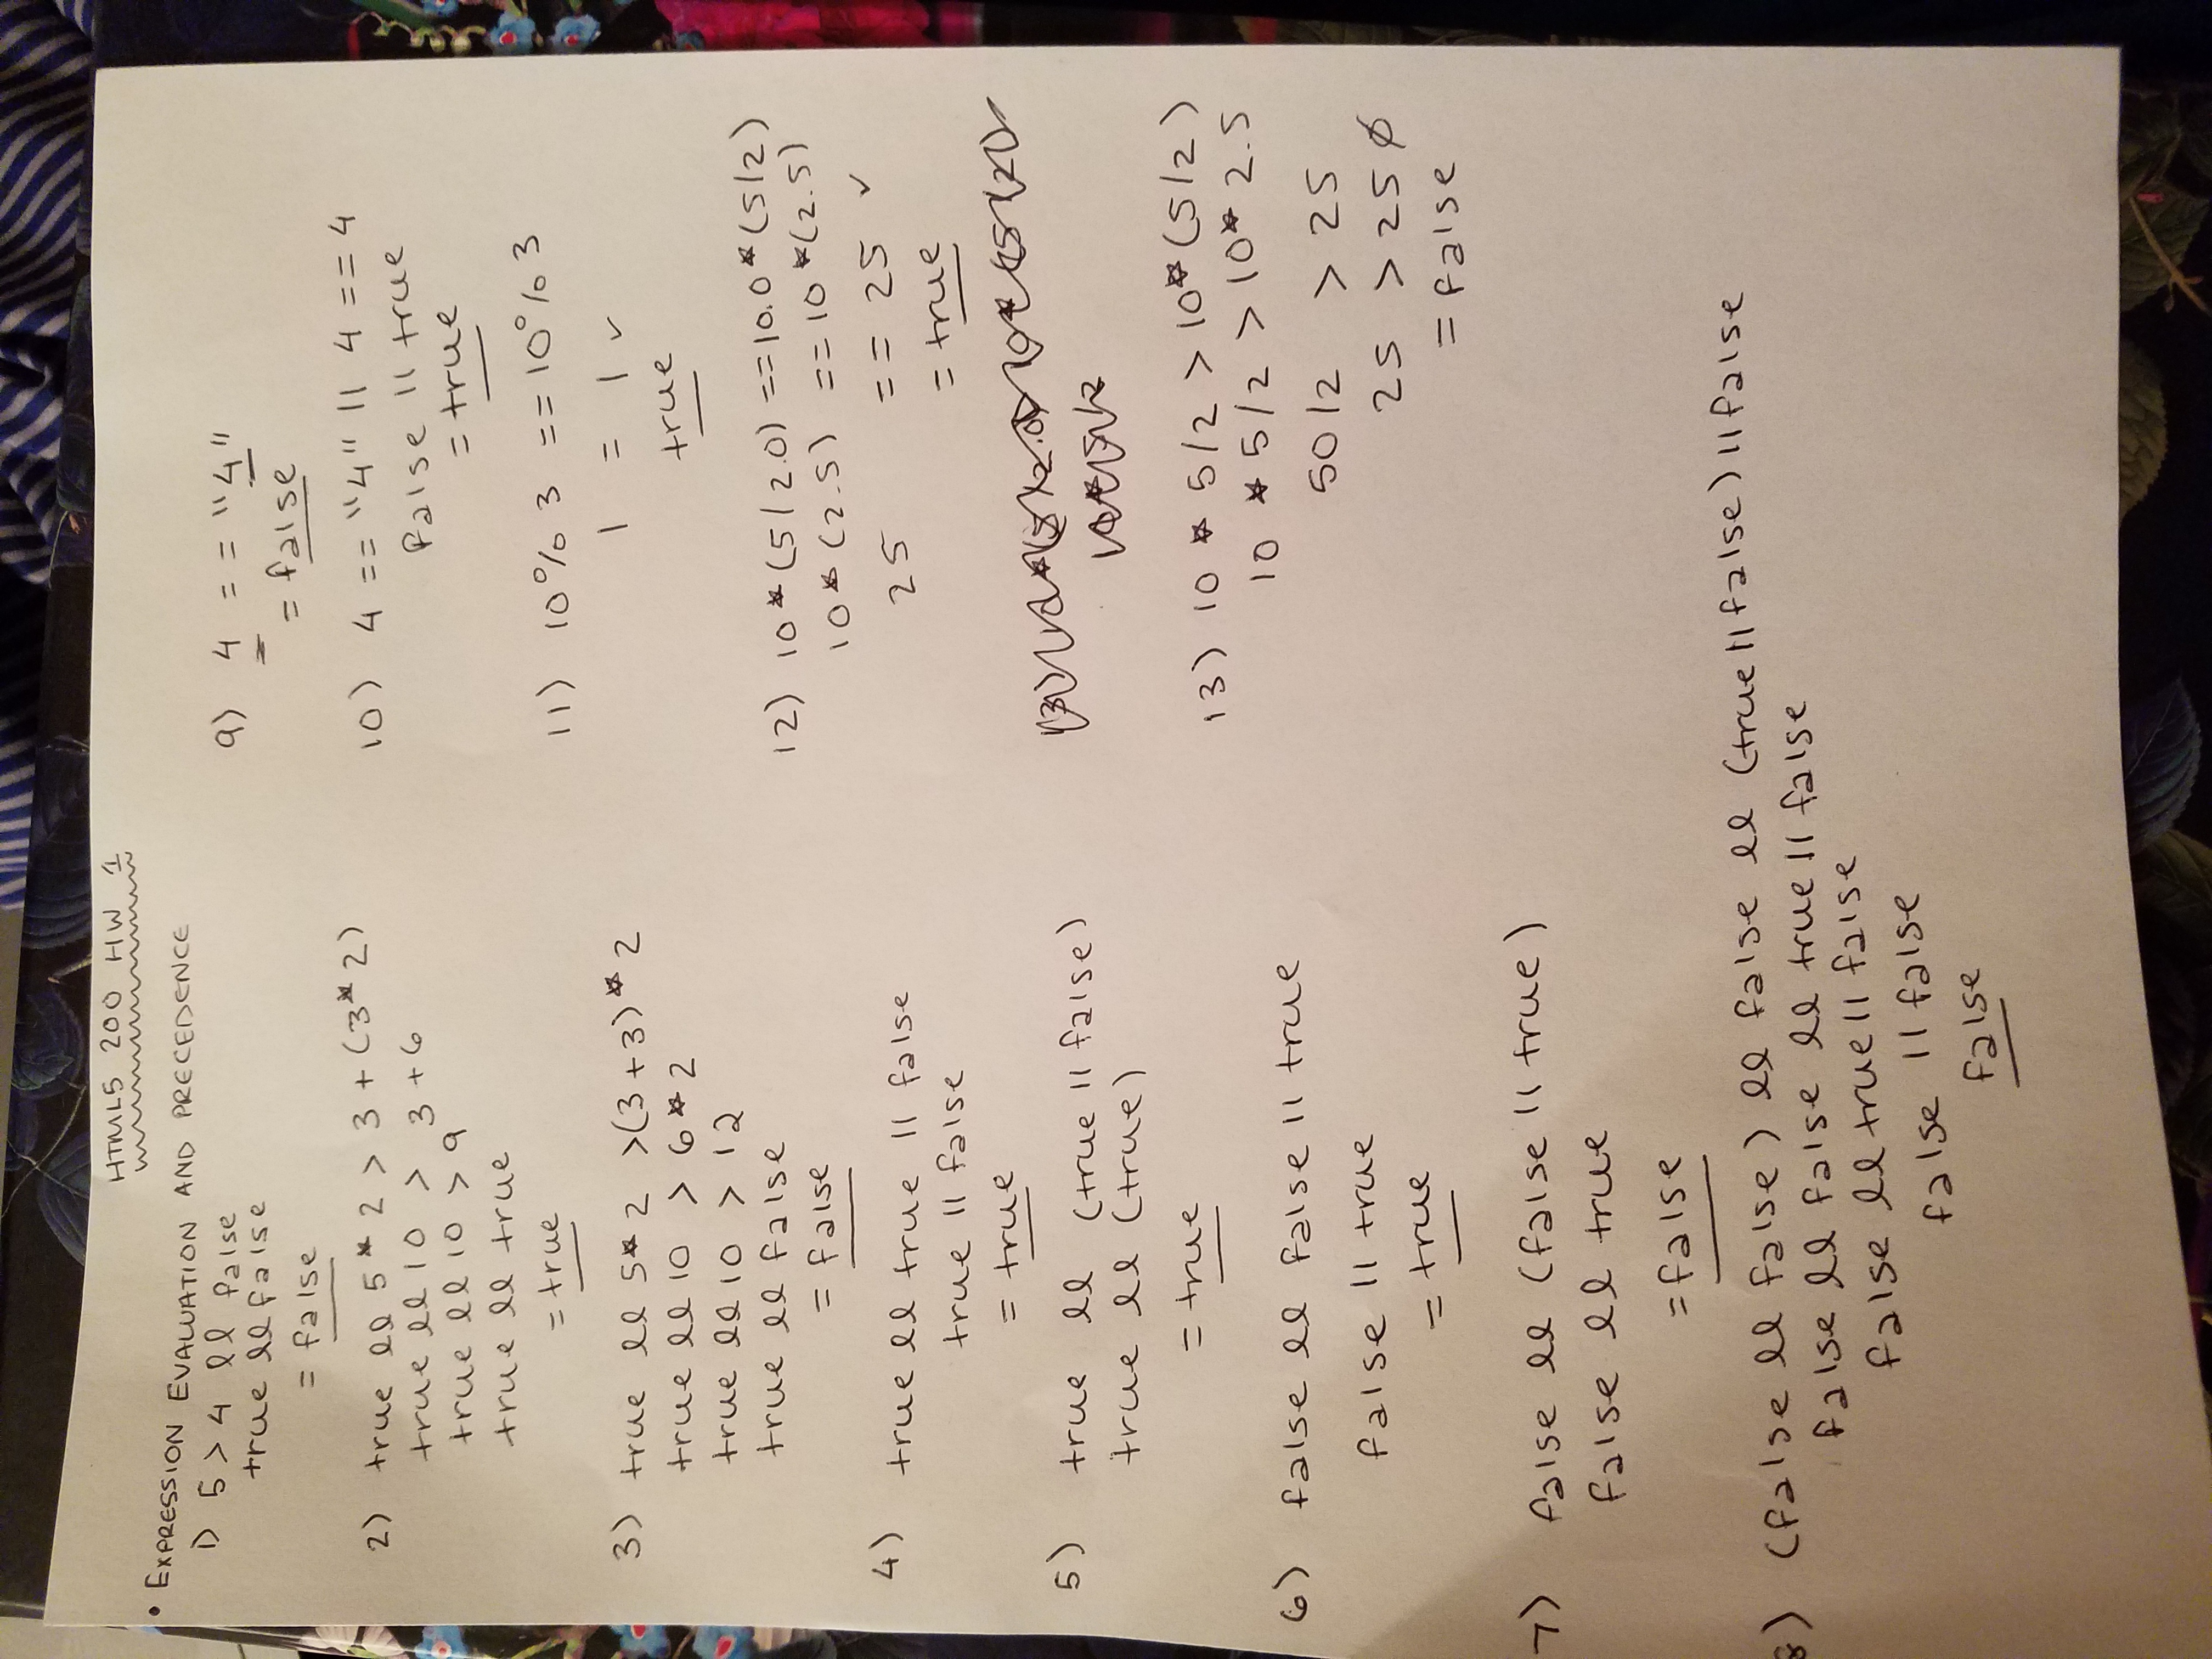 HTML5 200 HW 1
• EXPRESSION EVALUATION AND PRECEDENCE
1) 5 > 4 && false
true && false
= false
2) true && 5 * 2 > 3 + (3 * 2)
true && 10 > 3 + 6
true && 10 > 9
true && true
= true
3) true && 5 * 2 > (3 + 3) * 2
true && 10 > 6 * 2
true && 10 > 12
true && false
= false
4) true && true || false
true || false
= true
5) true && (true || false)
true && (true)
= true
6) false && false || true
false || true
= true
7) false && (false || true)
false && true
= false
8) (false && false) && false && (true || false) || false
false && false && true || false
false && true || false
false || false
false
9) 4 == "4"
= false
10) 4 == "4" || 4 == 4
false || true
= true
11) 10 % 3 == 10 % 3
1 = 1 ✓
true
12) 10 * (5/2.0) == 10.0 * (5/2)
10 * (2.5) == 10 * (2.5)
25 == 25 ✓
= true
13) 10 * 5/2 > 10 * (5/2)
10 * 5/2 > 10 * 2.5
50/2 > 25
25 > 25 ∅
= false